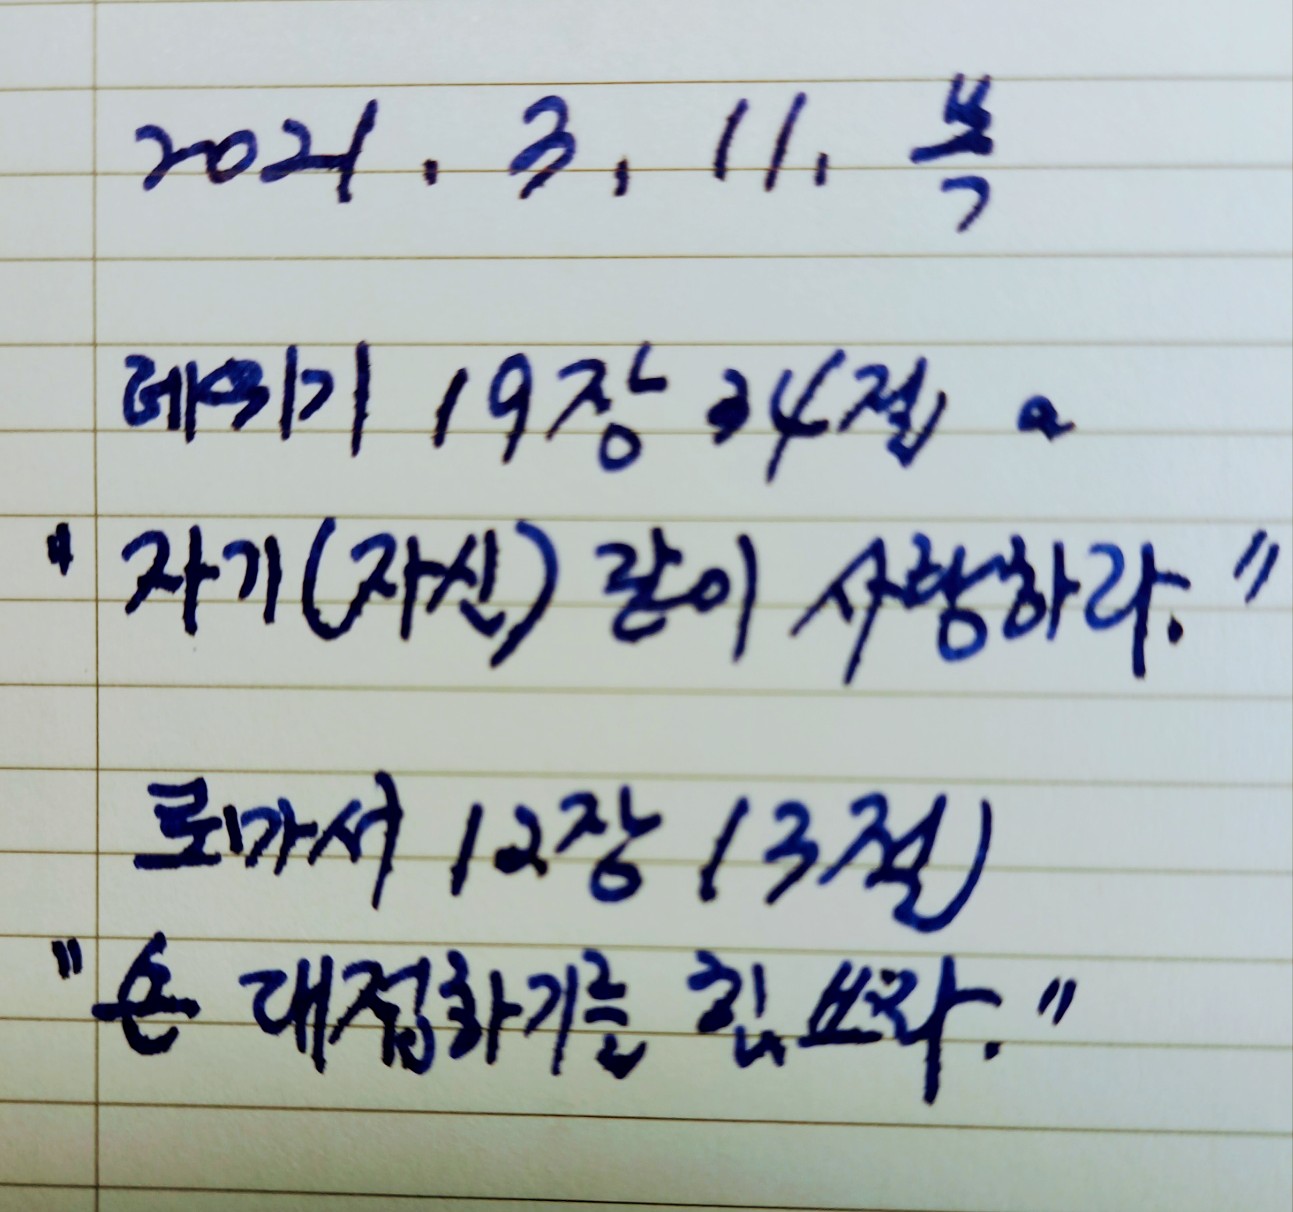 2021. 3. 11. 목
레위기 19장 34절 a
"자기(자신) 같이 사랑하라."
로마서 12장 13절
"손 대접하기를 힘쓰라."